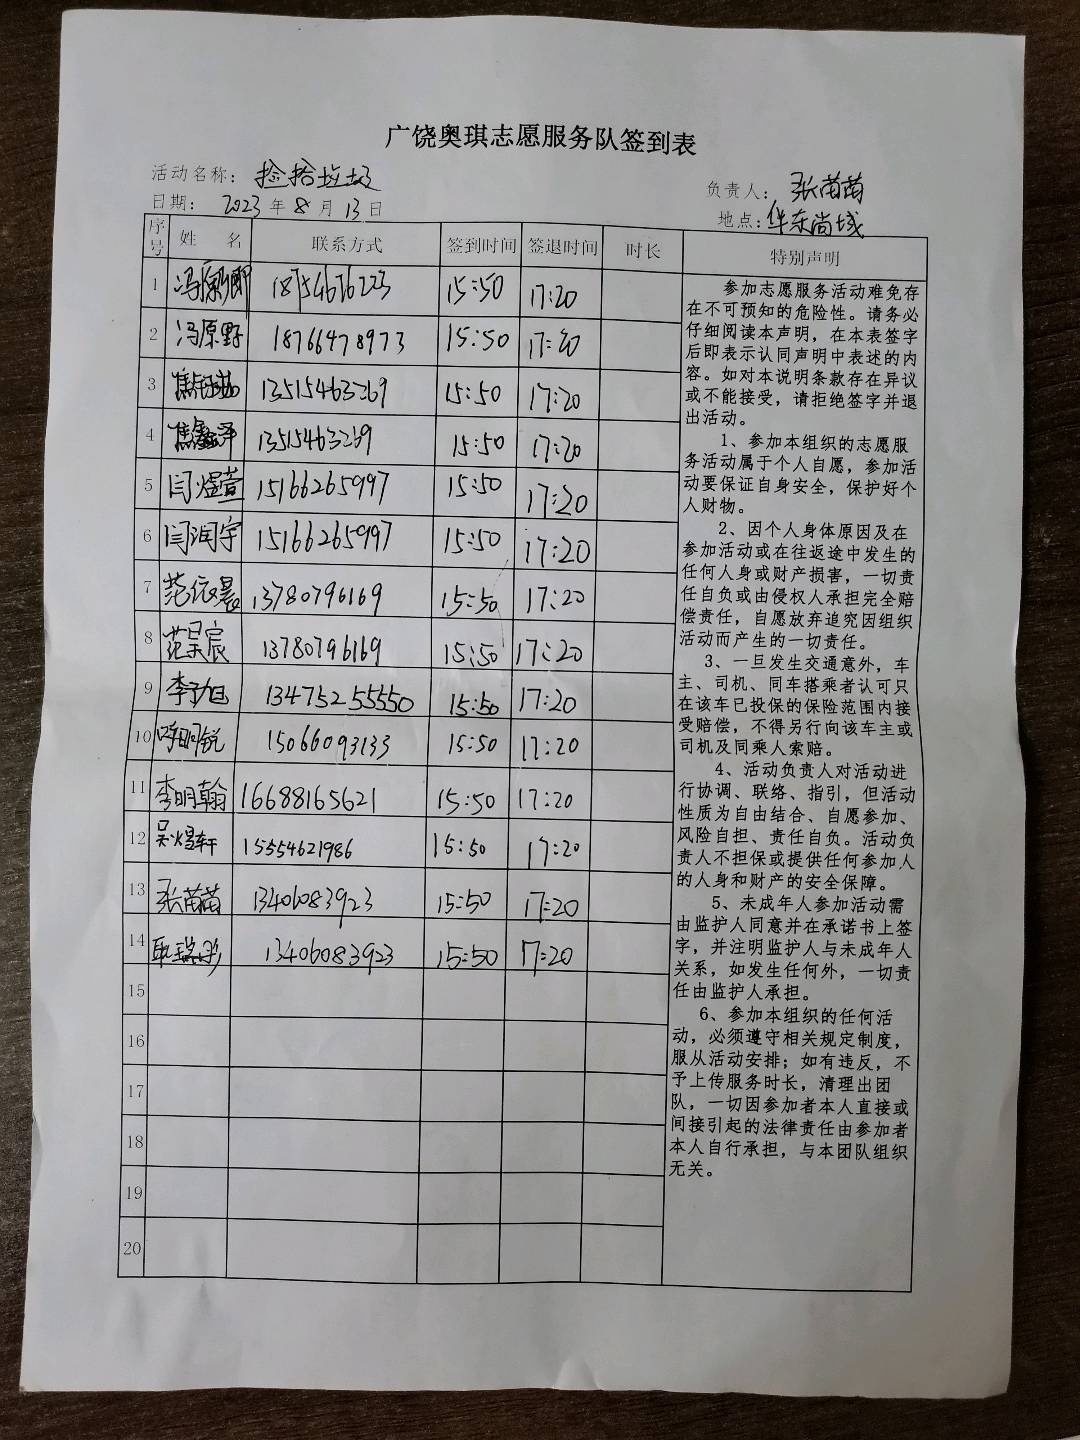 广饶奥琪志愿服务队签到表
活动名称：捡拾垃圾 负责人：张苗苗
日期：2023年8月13日 地点：华东尚域
序号 姓 名 联系方式 签到时间 签退时间 时长 特别声明
1 18754676223 15:50 17:20
2 冯原野 18766478973 15:50 17:20
3 13515463269 15:50 17:20
4 15:50 17:20
5 闫煜萱 15166265997 15:50 17:20
6 闫润宇 15166265997 15:50 17:20
7 范依晨 13780796169 15:50 17:20
8 范昊宸 13780796169 15:50 17:20
9 李子旭 134752 55550 15:50 17:20
10 15066093133 15:50 17:20
11 李明翰 16688165621 15:50 17:20
12 吴煜轩 15554621986 15:50 17:20
13 张苗苗 13406083923 15:50 17:20
14 13406083923 15:50 17:20
15
16
17
18
19
20
参加志愿服务活动难免存
在不可预知的危险性。请务必
仔细阅读本声明，在本表签字
后即表示认同声明中表述的内
容。如对本说明条款存在异议
或不能接受，请拒绝签字并退
出活动。
1、参加本组织的志愿服
务活动属于个人自愿，参加活
动要保证自身安全，保护好个
人财物。
2、因个人身体原因及在
参加活动或在往返途中发生的
任何人身或财产损害，一切责
任自负或由侵权人承担完全赔
偿责任，自愿放弃追究因组织
活动而产生的一切责任。
3、一旦发生交通意外，车
主、司机、同车搭乘者认可只
在该车已投保的保险范围内接
受赔偿，不得另行向该车主或
司机及同乘人索赔。
4、活动负责人对活动进
行协调、联络、指引，但活动
性质为自由结合、自愿参加、
风险自担、责任自负。活动负
责人不担保或提供任何参加人
的人身和财产的安全保障。
5、未成年人参加活动需
由监护人同意并在承诺书上签
字，并注明监护人与未成年人
关系，如发生任何外，一切责
任由监护人承担。
6、参加本组织的任何活
动，必须遵守相关规定制度，
服从活动安排；如有违反，不
予上传服务时长，清理出团
队，一切因参加者本人直接或
间接引起的法律责任由参加者
本人自行承担，与本团队组织
无关。